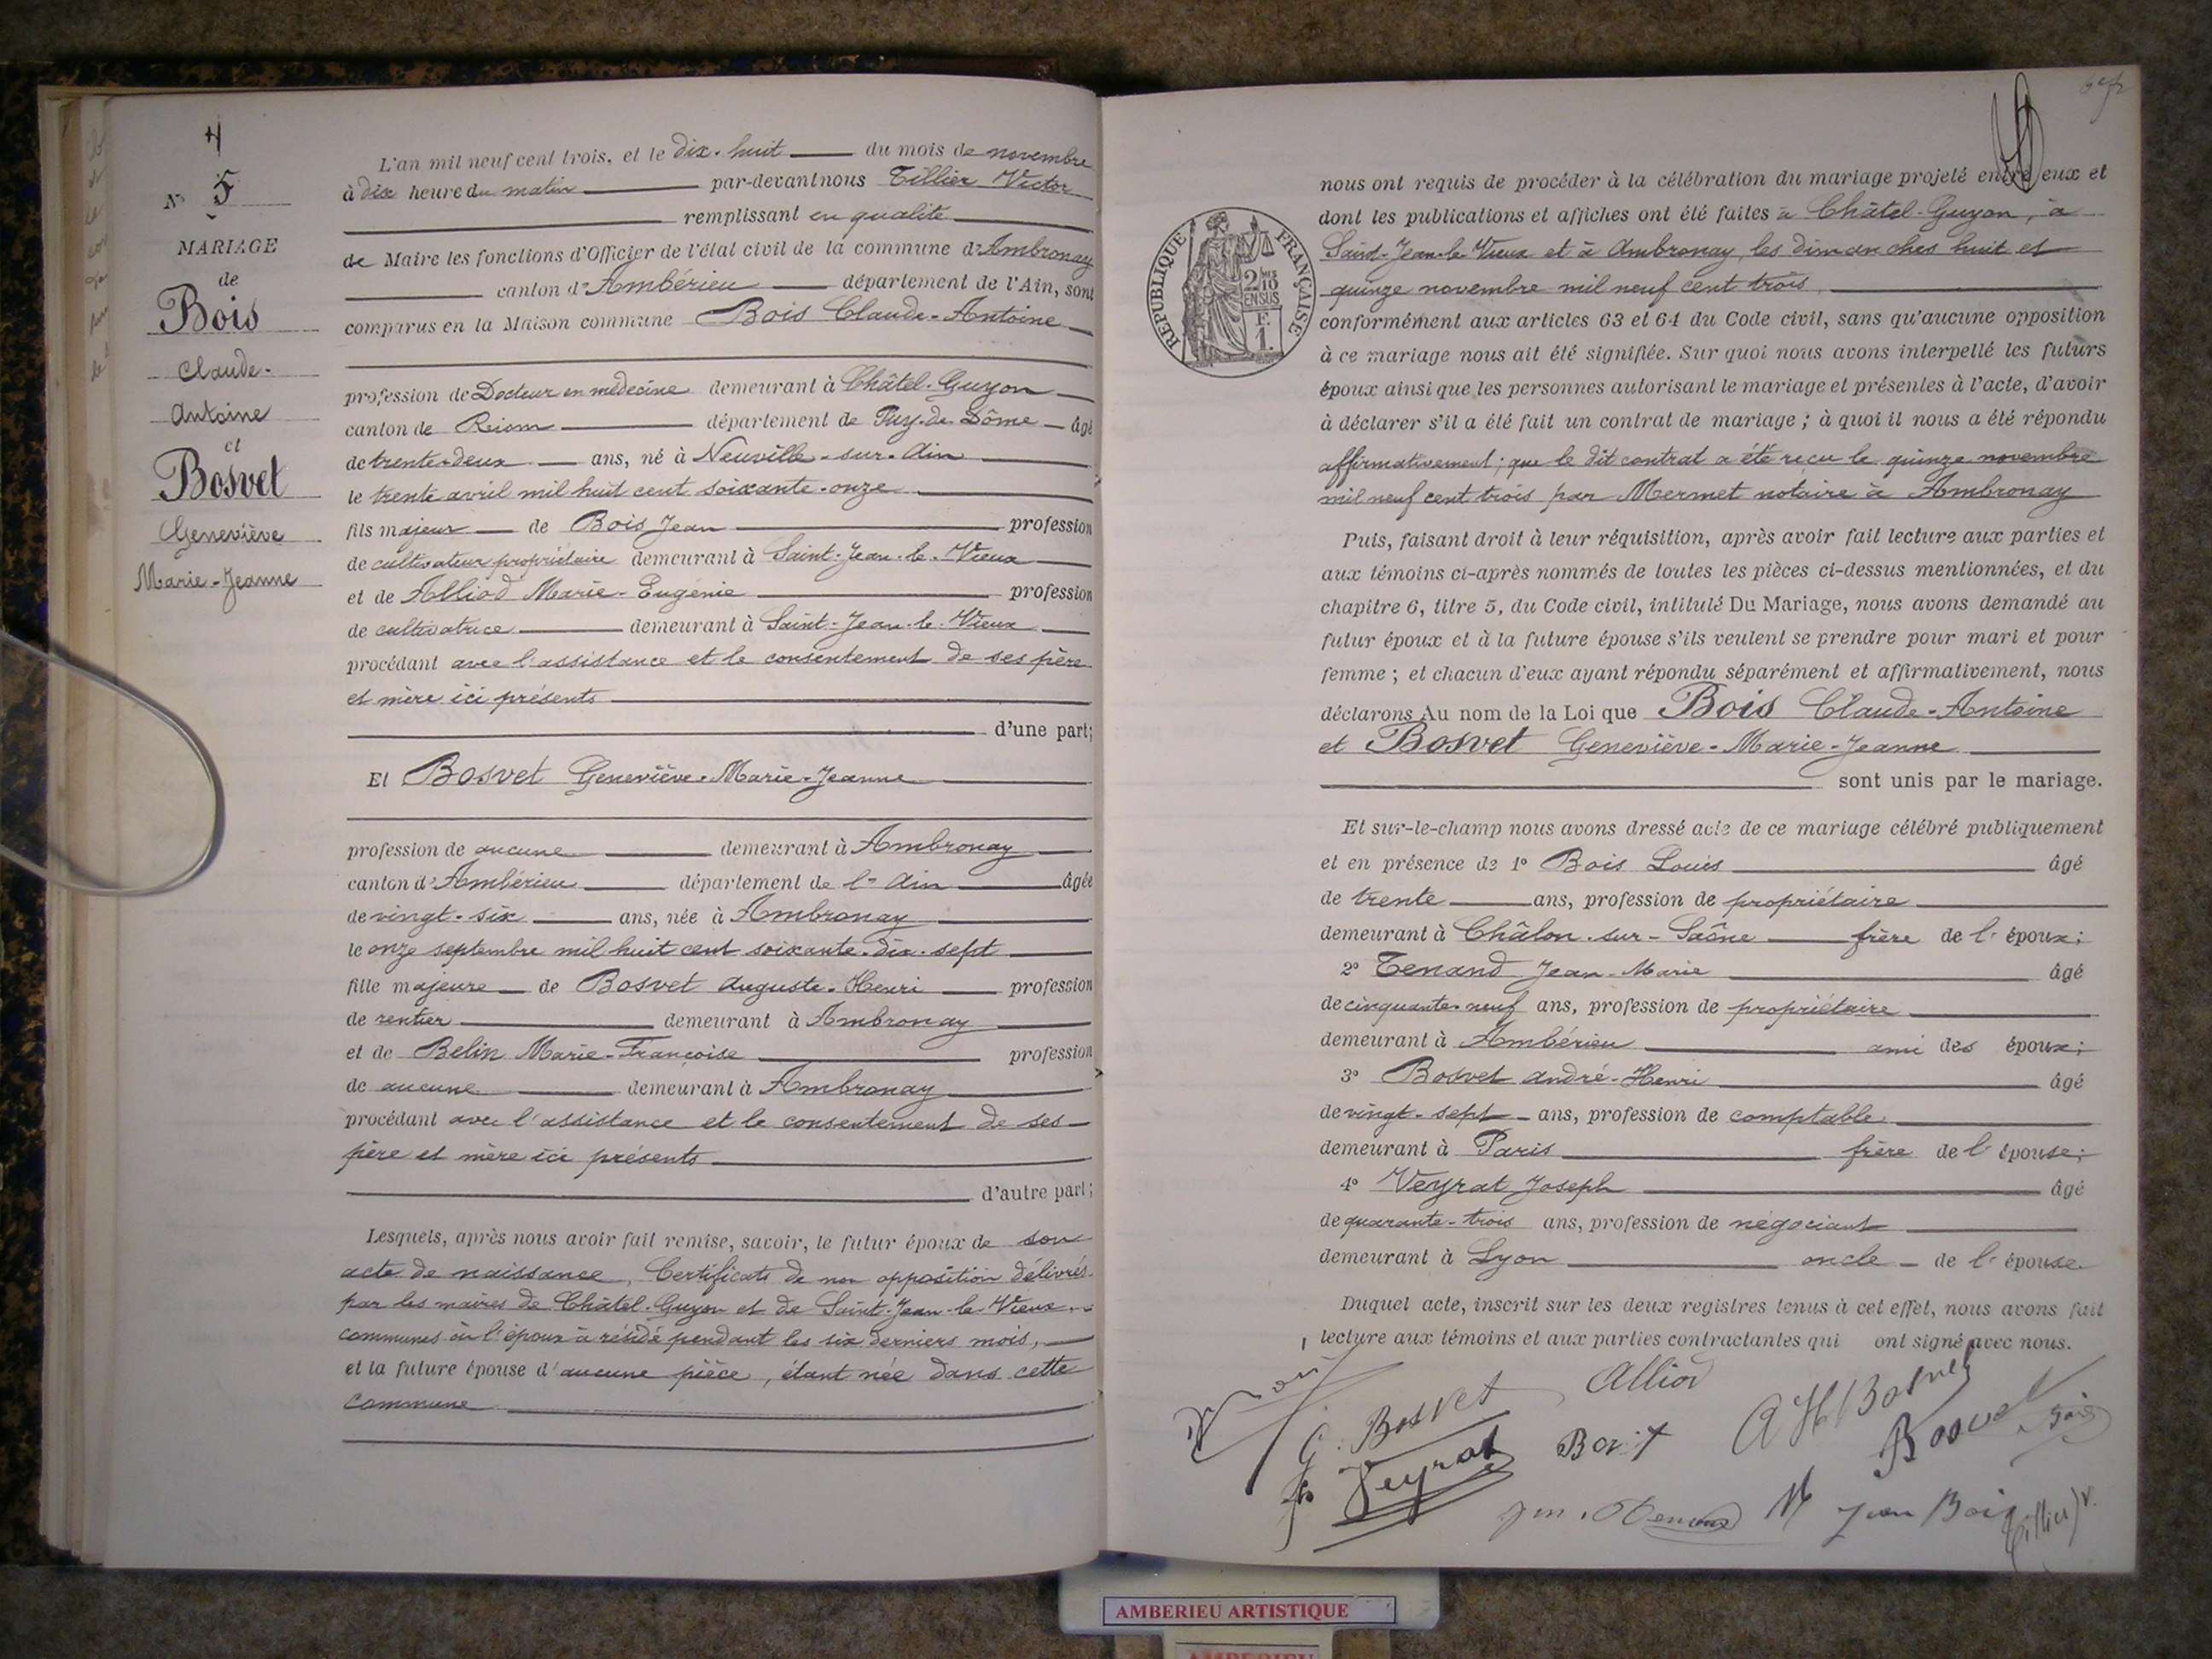 4
N° 5
MARIAGE
de
Bois
Claude-
Antoine
et
Bosvet
Geneviève
Marie-Jeanne
L'an mil neuf cent trois, et le dix-huit du mois de novembre
à dix heure du matin par-devant nous Tillier Victor
remplissant en qualité
de Maire les fonctions d'Officier de l'état civil de la commune d'Ambronay
canton d'Ambérieu département de l'Ain, sont
comparus en la Maison commune Bois Claude-Antoine
profession de Docteur en médecine demeurant à Châtel-Guyon
canton de Reiom département de Puy-de-Dôme âgé
de trente-deux ans, né à Neuville-sur-Ain
le trente avril mil huit cent soixante-onze
fils majeur de Bois Jean profession
de cultivateur propriétaire demeurant à Saint-Jean-le-Vieux
et de Alliod Marie-Eugénie profession
de cultivatrice demeurant à Saint-Jean-le-Vieux
procédant avec l'assistance et le consentement de ses père
et mère ici présents
d'une part;
Et Bosvet Geneviève-Marie-Jeanne
profession de aucune demeurant à Ambronay
canton d'Ambérieu département de l'Ain âgée
de vingt-six ans, née à Ambronay
le onze septembre mil huit cent soixante-dix-sept
fille majeure de Bosvet Auguste-Henri profession
de rentier demeurant à Ambronay
et de Belin Marie-Françoise profession
de aucune demeurant à Ambronay
procédant avec l'assistance et le consentement de ses
père et mère ici présents
d'autre part;
Lesquels, après nous avoir fait remise, savoir, le futur époux de son
acte de naissance, Certificats de non opposition délivrés
par les maires de Châtel-Guyon et de Saint-Jean-le-Vieux
communes où l'époux a résidé pendant les six derniers mois,
et la future épouse d'aucune pièce, étant née dans cette
commune
nous ont requis de procéder à la célébration du mariage projeté entre eux et
dont les publications et affiches ont été faites à Châtel-Guyon, à
Saint-Jean-le-Vieux et à Ambronay, les dimanches huit et
quinze novembre mil neuf cent trois
RÉPUBLIQUE FRANÇAISE
2/10
EN SUS
F.
1.
conformément aux articles 63 et 64 du Code civil, sans qu'aucune opposition
à ce mariage nous ait été signifiée. Sur quoi nous avons interpellé les futurs
époux ainsi que les personnes autorisant le mariage et présentes à l'acte, d'avoir
à déclarer s'il a été fait un contrat de mariage ; à quoi il nous a été répondu
affirmativement; que le dit contrat a été reçu le quinze novembre
mil neuf cent trois par Mermet notaire à Ambronay
Puis, faisant droit à leur réquisition, après avoir fait lecture aux parties et
aux témoins ci-après nommés de toutes les pièces ci-dessus mentionnées, et du
chapitre 6, titre 5, du Code civil, intitulé Du Mariage, nous avons demandé au
futur époux et à la future épouse s'ils veulent se prendre pour mari et pour
femme ; et chacun d'eux ayant répondu séparément et affirmativement, nous
déclarons Au nom de la Loi que Bois Claude-Antoine
et Bosvet Geneviève-Marie-Jeanne
sont unis par le mariage.
Et sur-le-champ nous avons dressé acte de ce mariage célébré publiquement
et en présence de 1° Bois Louis âgé
de trente ans, profession de propriétaire
demeurant à Châlon-sur-Saône frère de l'époux;
2° Tenand Jean-Marie âgé
de cinquante-neuf ans, profession de propriétaire
demeurant à Ambérieu ami des époux;
3° Bosvet André-Henri âgé
de vingt-sept ans, profession de comptable
demeurant à Paris frère de l'épouse;
4° Veyrat Joseph âgé
de quarante-trois ans, profession de négociant
demeurant à Lyon oncle de l'épouse
Duquel acte, inscrit sur les deux registres tenus à cet effet, nous avons fait
lecture aux témoins et aux parties contractantes qui ont signé avec nous.
G. Bosvet
Alliod
A H Bosvet
Bosvet
Bois
Veyrat
Jean Bois
Tillier V.
AMBERIEU ARTISTIQUE
AMBERIEU